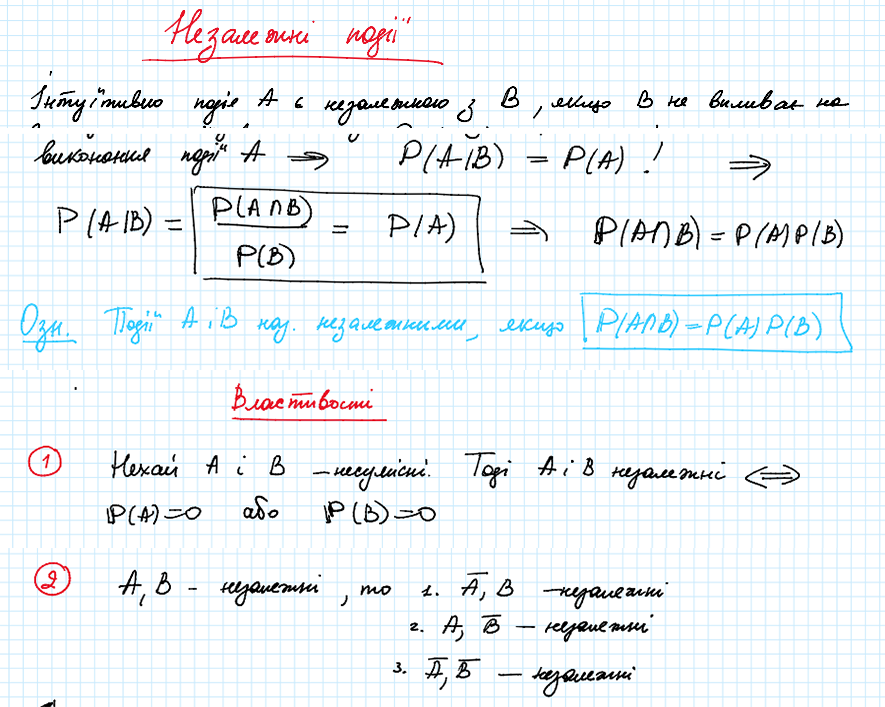 Незалежні події
Інтуїтивно подія A є незалежною з B, якщо B не впливає на
виконання події A ⟹ P(A|B) = P(A)! ⟹
P(A|B) = P(A∩B)/P(B) = P(A) ⟹ P(A∩B) = P(A)P(B)
Озн. Події A і B наз. незалежними, якщо P(A∩B) = P(A)P(B)
Властивості
① Нехай A і B – несумісні. Тоді A і B незалежні ⟺
P(A)=0 або P(B)=0
② A, B – незалежні, то 1. A̅, B – незалежні
2. A, B̅ – незалежні
3. A̅, B̅ – незалежні